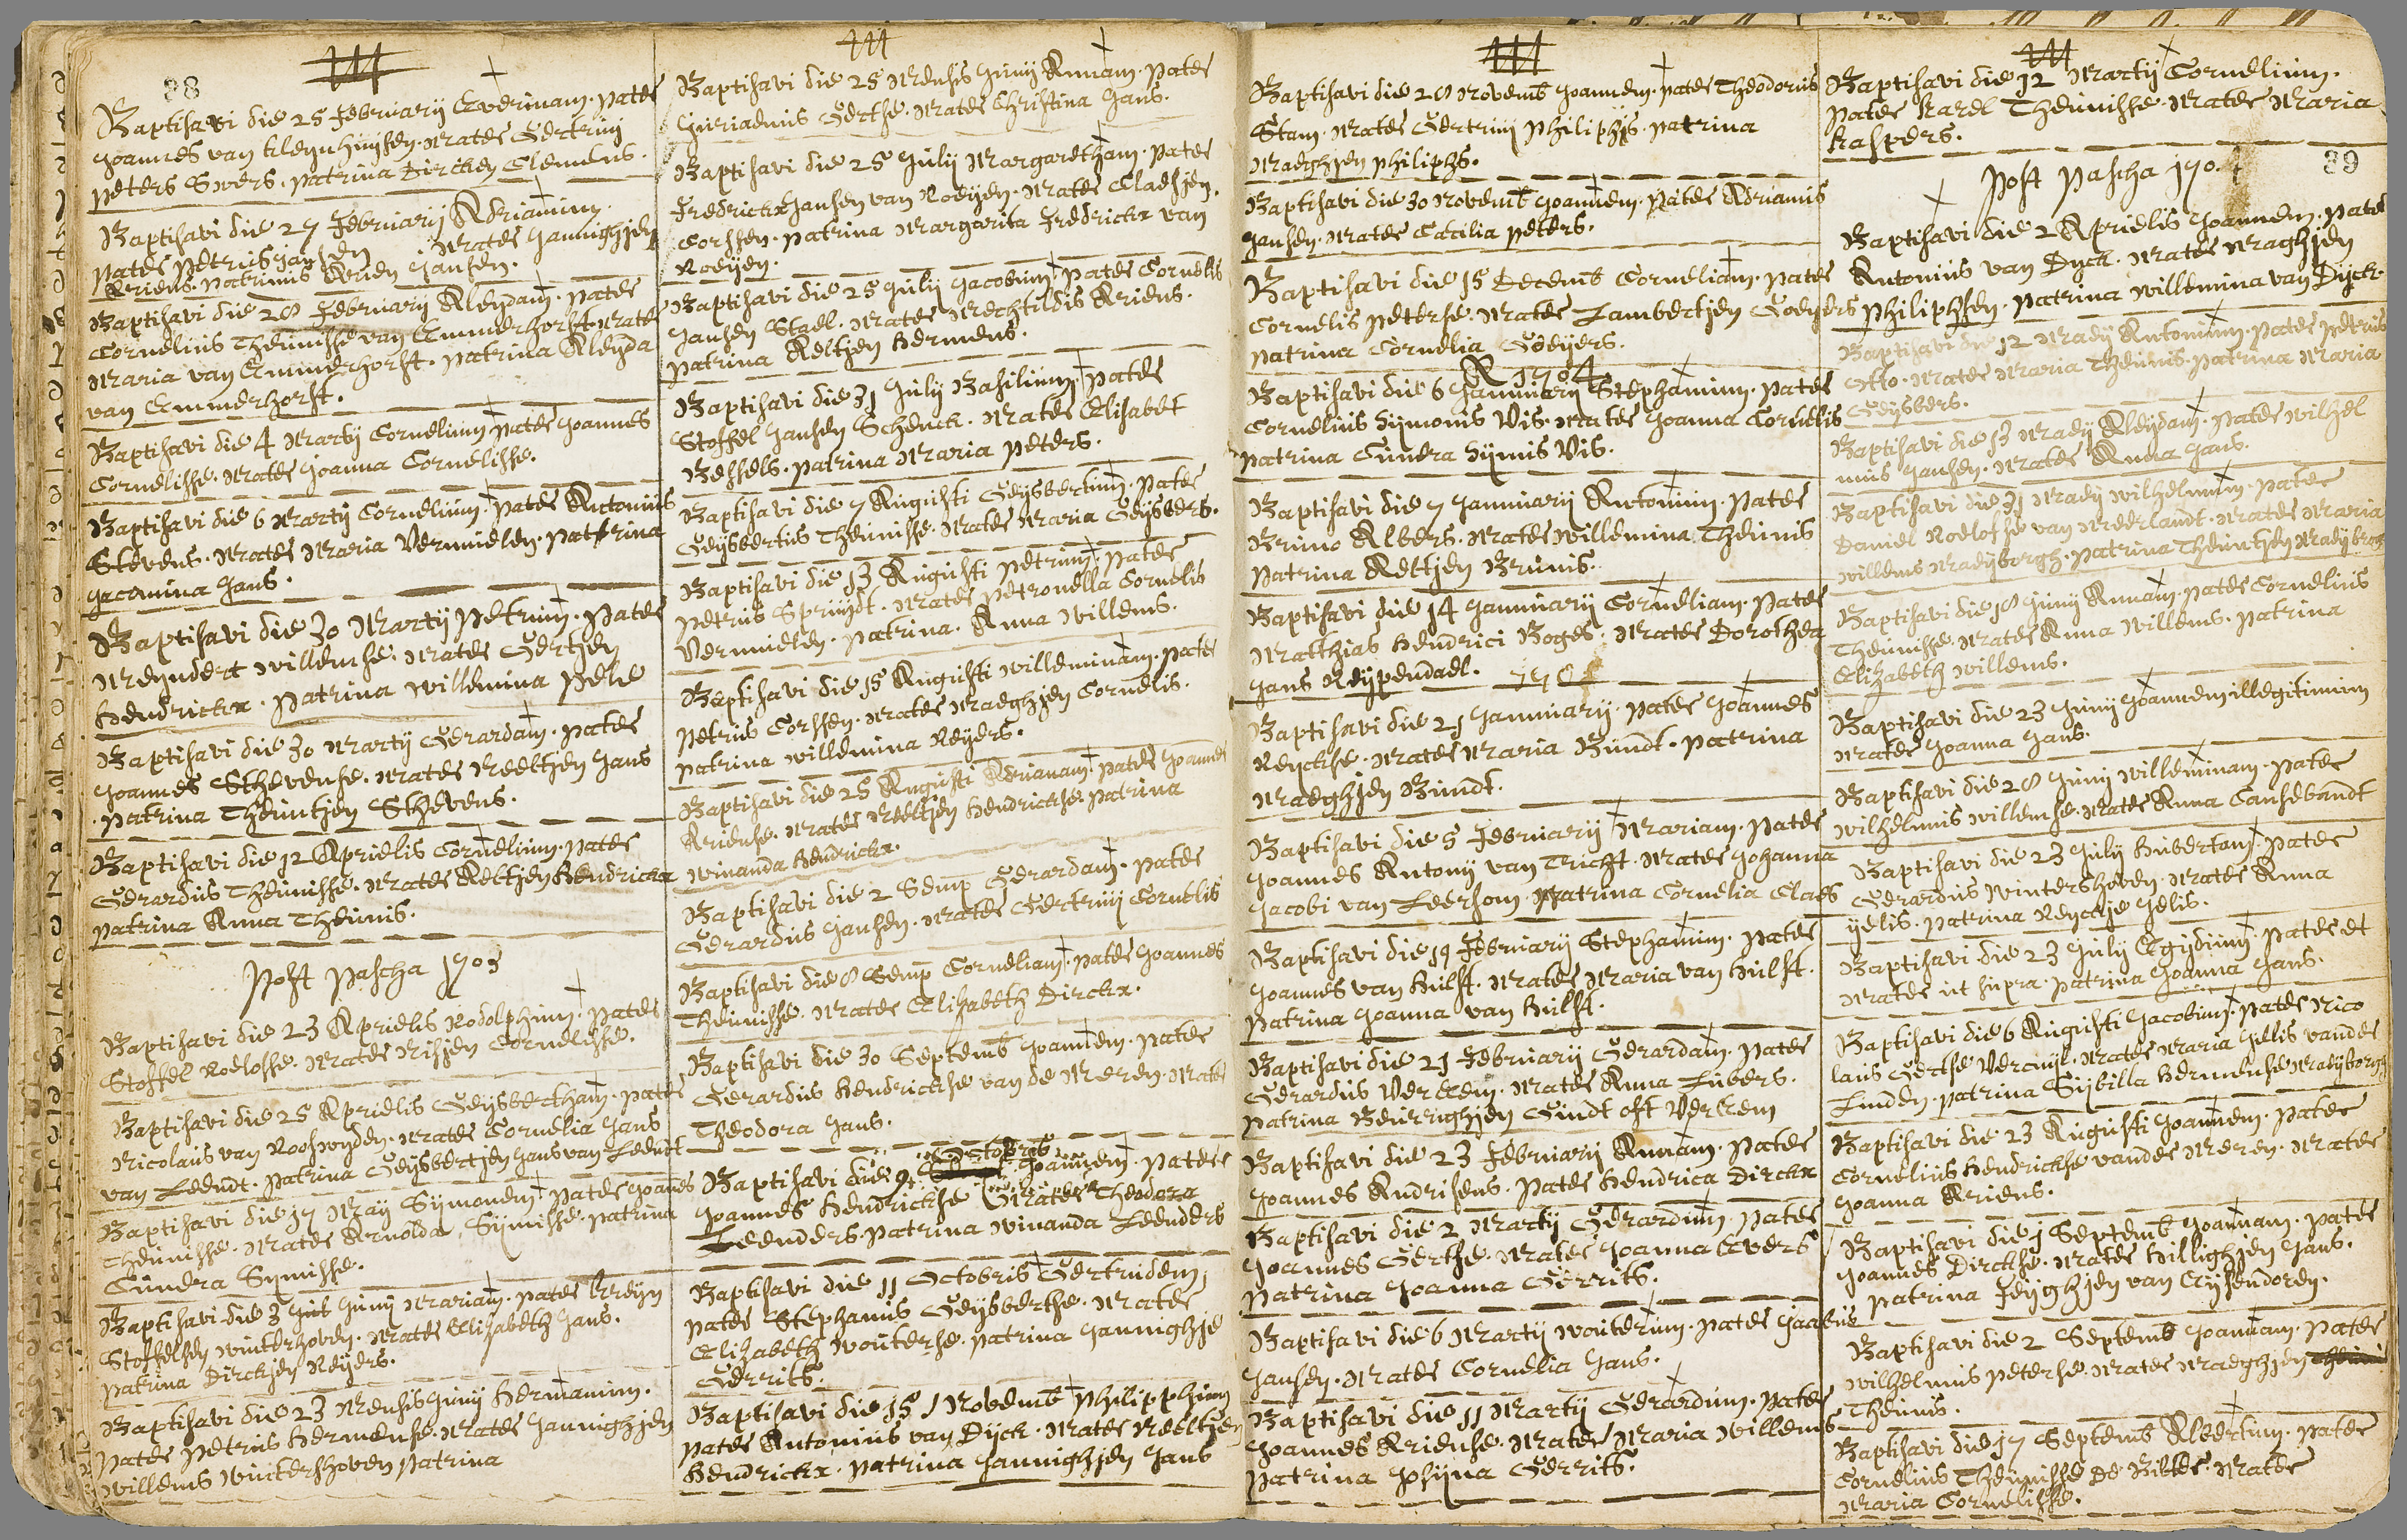 88
Baptisavi die 25 Februarij Everinam. pater
Joannes van kleynhuijsen. mater Gertruij
peters Swers. patrina Dirckjen Clemens.
Baptisavi die 27 Februarij Adrianum.
pater petrus jansen mater Jannighjen
Ariens. patrinus Arien Jansen.
Baptisavi die 28 Februarij Aleydam. pater
Cornelius Theunisse van Emmerhorst mater
Maria van Emmerhorst. patrina Aleyda
van Emmerhorst.
Baptisavi die 4 Martij Cornelium pater Joannes
Cornelisse. mater Joanna Cornelisse.
Baptisavi die 6 Martij Cornelium. pater Antonius
Stevens. mater Maria Vermeulen. patrina
Jacomina Jans.
Baptisavi die 30 Martij petrum. pater
Meyndert willemse. mater Gertjen
hendrickx. patrina willemina pele
Baptisavi die 30 Martij Gerardam. pater
Joannes Sthevense. mater Neeltjen Jans
patrina Theuntjen Sthevens.
Baptisavi die 12 Aprielis Cornelium. pater
Gerardus Theunisse. mater Aeltjen hendrickx
patrina Anna Theunis.
Post pascha 1703
Baptisavi die 23 Aprielis Rodolphum. pater
Stoffel Roelofse. mater Risjen Cornelisse.
Baptisavi die 25 Aprielis Geysbertham. pater
Nicolaus van Rooswyden. mater Cornelia Jans
van Leendt. patrina Geysbertjen Jans van Leendt
Baptisavi die 17 May Symonem. pater Joannes
Theunisse. mater Arnolda Sijmisse. patrina
Cunera Symisse.
Baptisavi die 3 Junij Mariam. pater kreijn
Stoffelsen winterhoven. mater Elisabeth Jans.
patrina Dirckjen Reyers.
Baptisavi die 23 Mensis Junij hermanum.
pater petrus hermense. mater Jannighjen
willems wintershoven patrina
Baptisavi die 25 Mensis Junij Annam. pater
Juriaenus Gertse. mater Christina Jans.
Baptisavi die 25 Julij Margaretham. pater
Fredrickx Jansen van Roeyen. mater Claesjen
Corssen. patrina Margarita Fredrickx van
Roeijen.
Baptisavi die 25 Julij Jacobum. pater Cornelis
Jansen Stael. mater Mechtildis Ariens.
patrina Aeltjen hermens.
Baptisavi die 31 Julij Basilium. pater
Stoffel Jansen Schenck. mater Elisabet
Bessels. patrina Maria peters.
Baptisavi die 7 Augusti Geysbertum. pater
Geysbertus Theunisse. mater Maria Geysbers.
Baptisavi die 13 Augusti petrum. pater
petrus Spruydt. mater petronella Cornelis
Vermeulen. patrina. Anna willems.
Baptisavi die 15 Augusti willeminam. pater
petrus Corssen. mater Maeghjen Cornelis.
patrina willemina Reyers.
Baptisavi die 25 Augusti Adrianam. pater Joannes
Ariense. mater Neeltjen hendrickse patrina
winanda hendrickx.
Baptisavi die 2 Semp Gerardam. pater
Gerardus Jansen. mater Gertruij Cornelis
Baptisavi die 8 Semp Corneliam. pater Joannes
Theunisse. mater Elisabeth Dirckx.
Baptisavi die 30 Septemb Joannem. pater
Gerardus hendrickse van de Meren. mater
Theodora Jans.
Baptisavi die 9 Octobris Joannem. pater
Joannes hendrickse mater Theodora
Leenders. patrina winanda Leenders
Baptisavi die 11 Octobris Gertrudem,
pater Stephanus Geysbertse. mater
Elizabeth wouterse. patrina Jannighje
Gerrits.
Baptisavi die 15 Novemb philipphum
pater Antonius van Dijck. mater Neeltjen
hendrickx. patrina Jannighjen Jans
Baptisavi die 28 Novemb Joannem. pater Theodorus
Stam. mater Gertruij philiphs. patrina
Maeghjen philiphs.
Baptisavi die 30 Novemb Joannem. pater Adrianus
Jansen. mater Cæcilia peters.
Baptisavi die 15 Decemb Corneliam. pater
Cornelis peterse. mater Lambertjen Goeyers
patrina Cornelia Goeyers.
A 1704
Baptisavi die 6 Jannuarij Stephanum. pater
Cornelius Sijmonis Vis. mater Joanna Cornelis
patrina Cunera Sijmis Vis.
Baptisavi die 7 Jannuarij Antonium. pater
Bruno Albers. mater willemina Theunis
patrina Aeltjen Brunis.
Baptisavi die 14 Jannuarij Corneliam. pater
Matthias hendrici Boges. mater Dorothea
Jans Reijpendael. 1704
Baptisavi die 21 Jannuarij. pater Joannes
Reyckse. mater Maria Bundt. patrina
Maeghjen Bundt.
Baptisavi die 5 Februarij Mariam. pater
Joannes Antonij van Tricht. mater Johanna
Jacobi van Leersom. patrina Cornelia Claes
Baptisavi die 19 Februarij Stephanum. pater
Joannes van hulst. mater Maria van hulst.
patrina Joanna van hulst.
Baptisavi die 21 Februarij Gerardam. pater
Gerardus Verkem. mater Anna Lubers.
patrina Beurrighjen Gundt oft Verkem
Baptisavi die 23 Februarij Annam. pater
Joannes Andrisens. pater hendrica Dirckx
Baptisavi die 2 Martij Gerardum. pater
Joannes Gertse. mater Joanna Evers
patrina Joanna Gerrits.
Baptisavi die 6 Martij wouterum. pater Jacobus
Jansen. mater Cornelia Jans.
Baptisavi die 11 Martij Gerardum. pater
Joannes Ariense. mater Maria willems
patrina Josijna Gerrits.
Baptisavi die 12 Martij Cornelium.
pater karel Theunisse. mater Maria
kaspers.
89
Post pascha 170.
Baptisavi die 2 Aprielis Joannem. pater
Antonius van Dyck. mater Maghjen
philiphsen. patrina willemina van Dijck.
Baptisavi die 12 Maij Antonium. pater petrus
Otto. mater Maria Theunis. patrina Maria
Geysbers.
Baptisavi die 13 Maij Aleydam. pater wilhel
mus Jansen. mater Anna Jans.
Baptisavi die 31 Maij wilhelmum. pater
Daniel Roelofse van Meerlandt. mater Maria
willems Maeijborgh. patrina Theuntjen Maeijborgh
Baptisavi die 18 Junij Annam. pater Cornelius
Theunisse. mater Anna willems. patrina
Elizabeth willems.
Baptisavi die 23 Junij Joannem illegitimum
mater Joanna Jans.
Baptisavi die 28 Junij willeminam. pater
wilhelmus willemse. mater Anna Cansebandt
Baptisavi die 23 Julij hubertam. pater
Gerardus wintershoven. mater Anna
yelis. patrina Reyckje Jelis.
Baptisavi die 23 Julij Egydium. pater et
mater ut supra. patrina Joanna Jans.
Baptisavi die 6 Augusti Jacobum. pater Nico
laus Gertse Vercuijl. mater Maria Jellis vander
Linden. patrina Sijbilla hermense Maeijborgh
Baptisavi die 23 Augusti Joannem. pater
Cornelius hendrickse vander Meren. mater
Joanna Ariens.
Baptisavi die 1 Septemb Joannam. pater
Joannes Dirckse. mater hillighjen Jans.
patrina Feijghjen van Eijsendoren.
Baptisavi die 2 Septemb Joannam. pater
wilhelmus peterse. mater Maeghjen
Theunis.
Baptisavi die 17 Septemb Albertum. pater
Cornelius Theunisse De Bilde. mater
Maria Cornelisse.